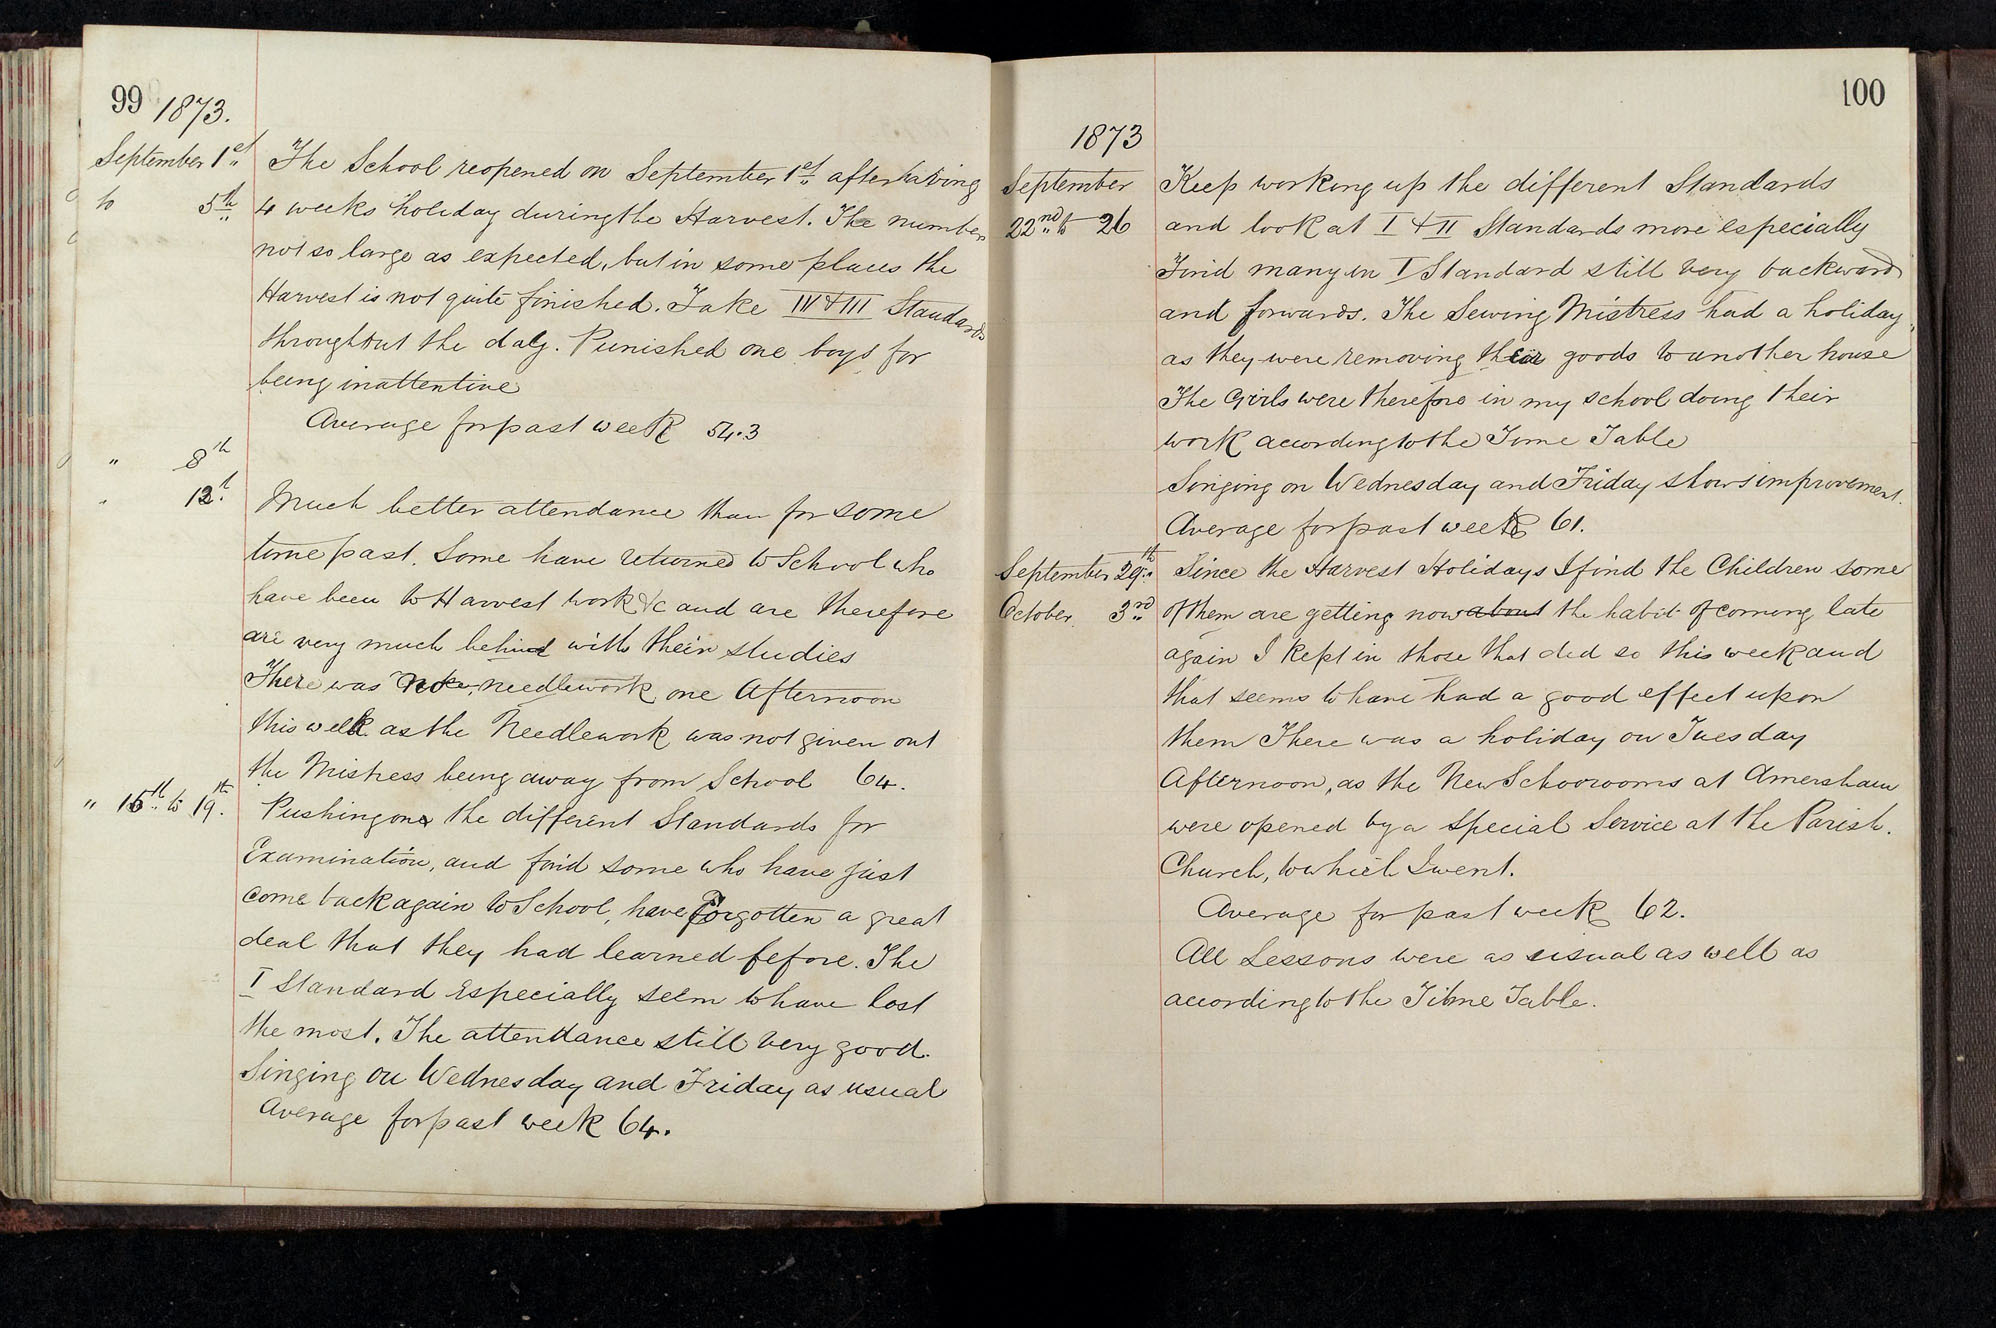 99 1873.
September 1st The School reopened on September 1st after having
to 5th 4 weeks holiday during the Harvest. The number
not so large as expected, but in some places the
Harvest is not quite finished. Take IV & III Standards
throughout the day. Punished one boys for
being inattentive
Average for past week 54.3
" 8th
" 12th. Much better attendance than for some
time past. Some have returned to School who
have been to Harvest work &c and are therefore
are very much behind with their studies
There was needlework one Afternoon
this week as the Needlework was not given out
the Mistress being away from School 64.
" 15th to 19th. Pushing on the different Standards for
Examination, and find some who have just
come back again to School, have forgotten a great
deal that they had learned before. The
I Standard Especially seem to have lost
the most. The attendance still very good.
Singing on Wednesday and Friday as usual
Average for past week 64.
100
1873
September Keep working up the different Standards
22nd to 26 and look at I & II Standards more especially
Find many in I Standard still very backward
and forwards. The Sewing Mistress had a holiday,
as they were removing their goods to another house
The Girls were therefore in my school doing their
work according to the Time Table
Singing on Wednesday and Friday shows improvement.
Average for past week 61.
September 29th Since the Harvest Holidays I find the Children some
October 3rd of them are getting now about the habit of coming late
again I kept in those that did so this week and
that seems to have had a good effect upon
them There was a holiday on Tuesday
Afternoon, as the New Schoorooms at Amersham
were opened by a special Service at the Parish.
Church, to which I went.
Average for past week 62.
All Lessons were as usual as well as
according to the Time Table.